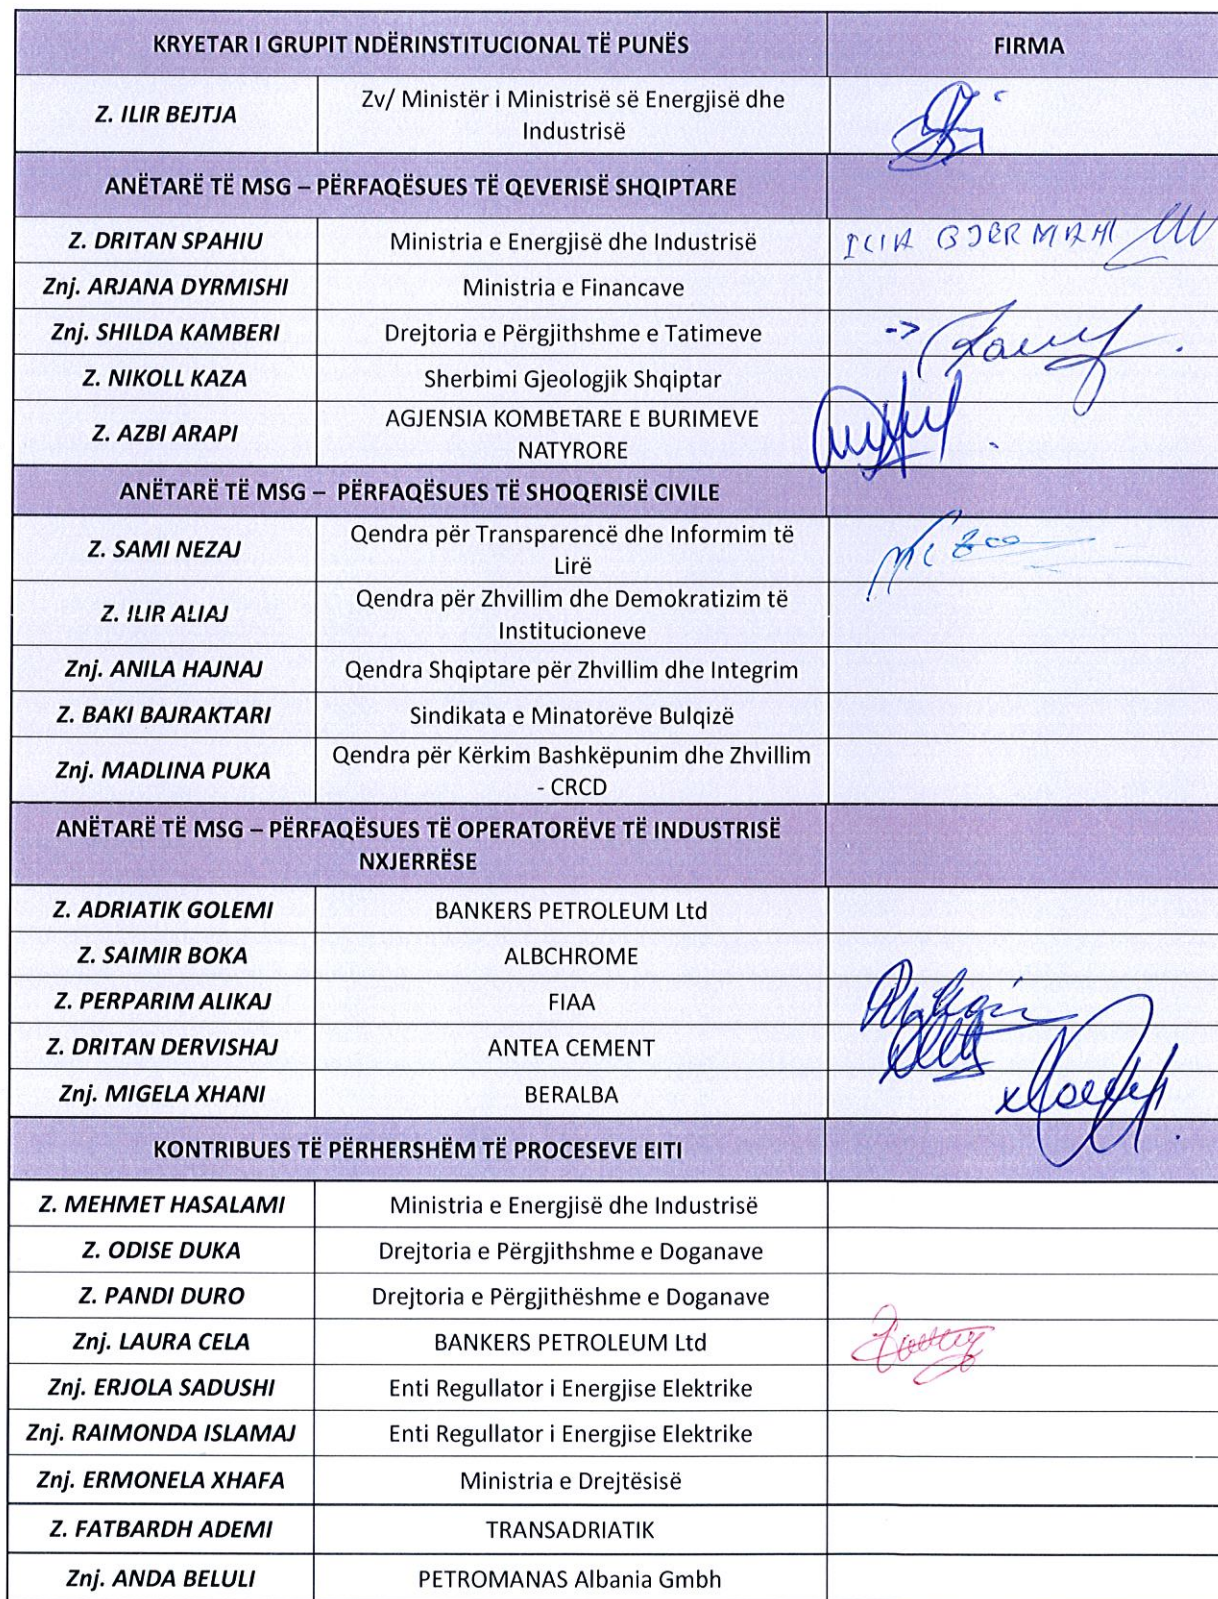 KRYETAR I GRUPIT NDËRINSTITUCIONAL TË PUNËS FIRMA
Z. ILIR BEJTJA Zv/ Ministër i Ministrisë së Energjisë dhe
Industrisë
ANËTARË TË MSG – PËRFAQËSUES TË QEVERISË SHQIPTARE
Z. DRITAN SPAHIU Ministria e Energjisë dhe Industrisë
Znj. ARJANA DYRMISHI Ministria e Financave
Znj. SHILDA KAMBERI Drejtoria e Përgjithshme e Tatimeve
Z. NIKOLL KAZA Sherbimi Gjeologjik Shqiptar
Z. AZBI ARAPI AGJENSIA KOMBETARE E BURIMEVE
NATYRORE
ANËTARË TË MSG – PËRFAQËSUES TË SHOQERISË CIVILE
Z. SAMI NEZAJ Qendra për Transparencë dhe Informim të
Lirë
Z. ILIR ALIAJ Qendra për Zhvillim dhe Demokratizim të
Institucioneve
Znj. ANILA HAJNAJ Qendra Shqiptare për Zhvillim dhe Integrim
Z. BAKI BAJRAKTARI Sindikata e Minatorëve Bulqizë
Znj. MADLINA PUKA Qendra për Kërkim Bashkëpunim dhe Zhvillim
- CRCD
ANËTARË TË MSG – PËRFAQËSUES TË OPERATORËVE TË INDUSTRISË
NXJERRËSE
Z. ADRIATIK GOLEMI BANKERS PETROLEUM Ltd
Z. SAIMIR BOKA ALBCHROME
Z. PERPARIM ALIKAJ FIAA
Z. DRITAN DERVISHAJ ANTEA CEMENT
Znj. MIGELA XHANI BERALBA
KONTRIBUES TË PËRHERSHËM TË PROCESEVE EITI
Z. MEHMET HASALAMI Ministria e Energjisë dhe Industrisë
Z. ODISE DUKA Drejtoria e Përgjithshme e Doganave
Z. PANDI DURO Drejtoria e Përgjithëshme e Doganave
Znj. LAURA CELA BANKERS PETROLEUM Ltd
Znj. ERJOLA SADUSHI Enti Regullator i Energjise Elektrike
Znj. RAIMONDA ISLAMAJ Enti Regullator i Energjise Elektrike
Znj. ERMONELA XHAFA Ministria e Drejtësisë
Z. FATBARDH ADEMI TRANSADRIATIK
Znj. ANDA BELULI PETROMANAS Albania Gmbh